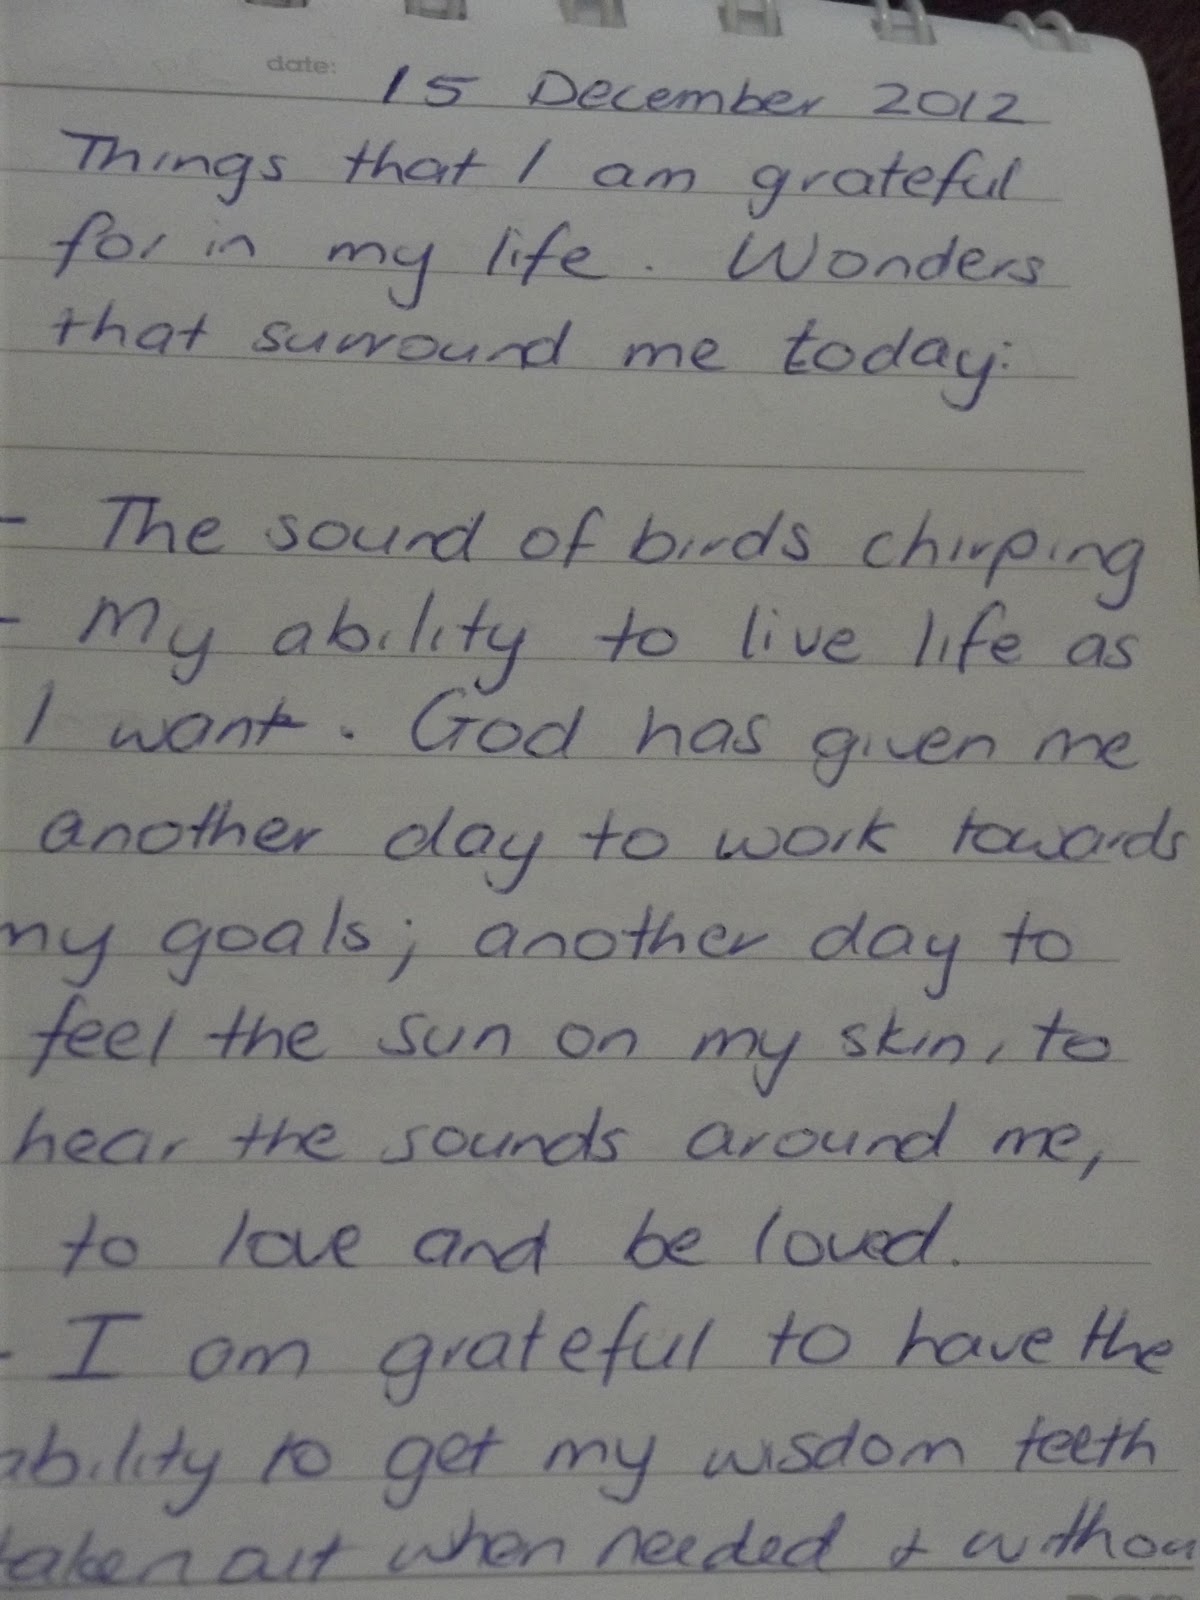 date: 15 December 2012
Things that I am grateful
for in my life. Wonders
that surround me today:
- The sound of birds chirping
- My ability to live life as
I want. God has given me
another day to work towards
my goals; another day to
feel the sun on my skin, to
hear the sounds around me,
to love and be loved.
- I am grateful to have the
ability to get my wisdom teeth
taken out when needed & withou